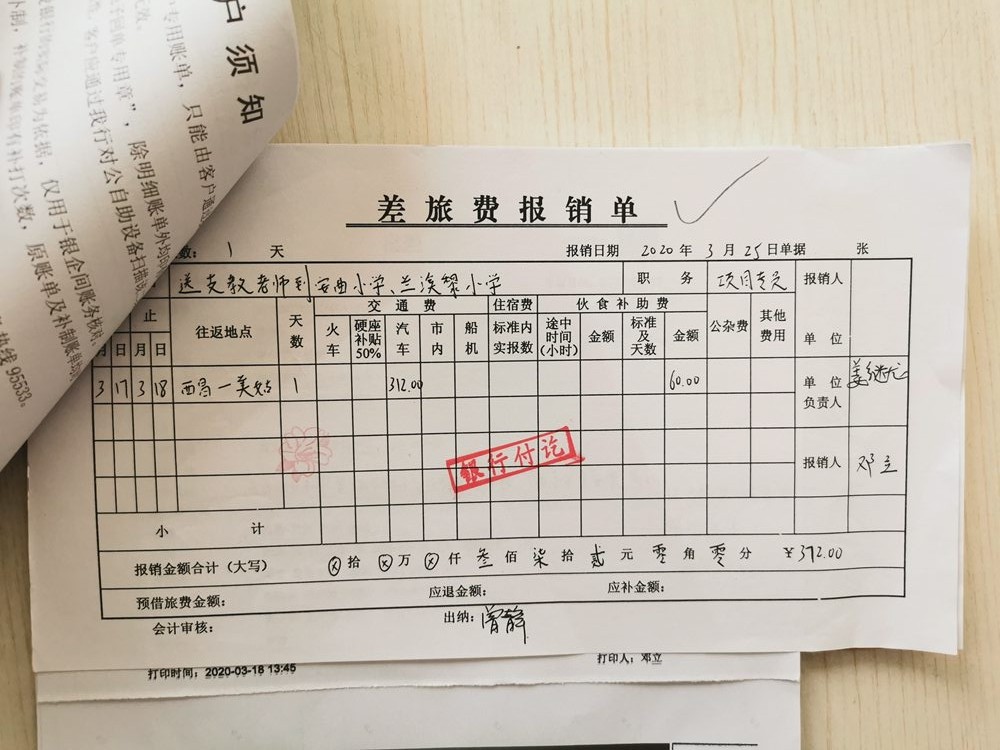 户须知
专用账单，只能由客户通
子回单专用章”，除明细账单外均
客户应通过我行对公自助设备扫描
交易为依据，仅用于银企间账务核对，
补打次数，原账单及补制账单
热线95533。
差旅费报销单
数：1 天 报销日期 2020年3月25日单据 张
送支教老师到 小学、 小学 职务 项目专员 报销人
止 往返地点 天数 交通费 住宿费 伙食补助费 公杂费 其他费用 单位
月 日 月 日 火车 硬座补贴50% 汽车 市内 船机 标准内实报数 途中时间(小时) 金额 标准及天数 金额
3 17 3 18 西昌—美姑 1 312.00 60.00 单位负责人
银行付讫
报销人 邓立
小计
报销金额合计（大写） ⊗拾⊗万⊗仟叁佰柒拾贰元零角零分 ¥372.00
预借旅费金额： 应退金额： 应补金额：
会计审核： 出纳：曾静
打印时间：2020-03-18 13:45 打印人：邓立